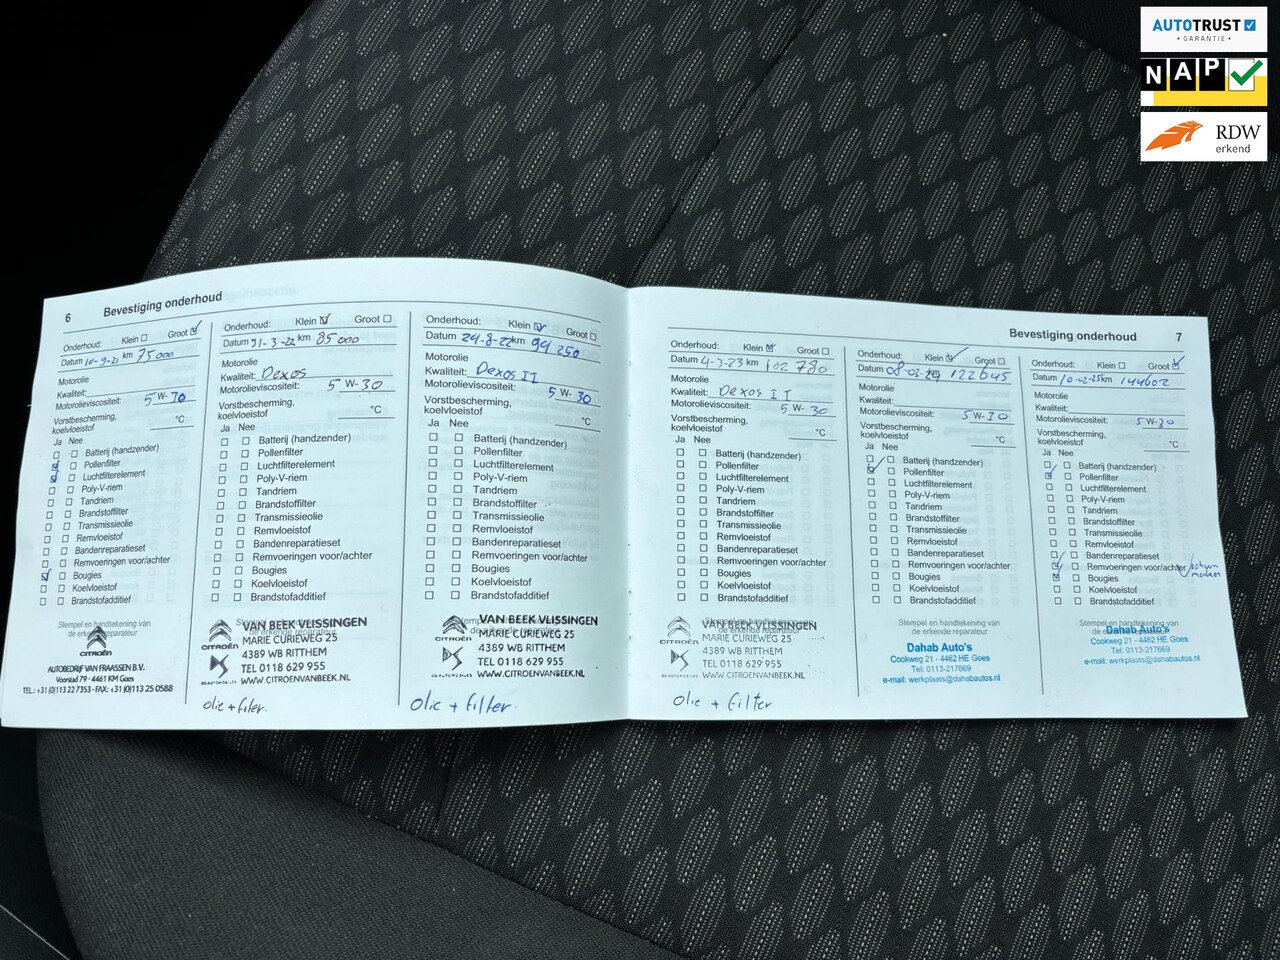 AUTOTRUST
• GARANTIE •
NAP
RDW
erkend
6 Bevestiging onderhoud
Onderhoud: Klein Groot
Datum 10-9-21 km 75000
Motorolie
Kwaliteit:
Motorolieviscositeit: 5 W- 30
Vorstbescherming,
koelvloeistof °C
Ja Nee
Batterij (handzender)
Pollenfilter
Luchtfilterelement
Poly-V-riem
Tandriem
Brandstoffilter
Transmissieolie
Remvloeistof
Bandenreparatieset
Remvoeringen voor/achter
Bougies
Koelvloeistof
Brandstofadditief
Stempel en handtekening van
de erkende reparateur
CITROËN
AUTOBEDRIJF VAN FRAASSEN B.V.
Voorstad 79 - 4461 KM Goes
TEL.: +31 (0)113 227353 - FAX: +31 (0)113 25 0588
Onderhoud: Klein Groot
Datum 31-3-22 km 85000
Motorolie
Kwaliteit: Dexos
Motorolieviscositeit: 5 W- 30
Vorstbescherming,
koelvloeistof °C
Ja Nee
Batterij (handzender)
Pollenfilter
Luchtfilterelement
Poly-V-riem
Tandriem
Brandstoffilter
Transmissieolie
Remvloeistof
Bandenreparatieset
Remvoeringen voor/achter
Bougies
Koelvloeistof
Brandstofadditief
CITROËN
VAN BEEK VLISSINGEN
MARIE CURIEWEG 25
4389 WB RITTHEM
TEL 0118 629 955
WWW.CITROENVANBEEK.NL
olie + filter.
Onderhoud: Klein Groot
Datum 24-8-22 km 94250
Motorolie
Kwaliteit: Dexos II
Motorolieviscositeit: 5 W- 30
Vorstbescherming,
koelvloeistof °C
Ja Nee
Batterij (handzender)
Pollenfilter
Luchtfilterelement
Poly-V-riem
Tandriem
Brandstoffilter
Transmissieolie
Remvloeistof
Bandenreparatieset
Remvoeringen voor/achter
Bougies
Koelvloeistof
Brandstofadditief
CITROËN
VAN BEEK VLISSINGEN
MARIE CURIEWEG 25
4389 WB RITTHEM
TEL 0118 629 955
WWW.CITROENVANBEEK.NL
olie + filter.
Bevestiging onderhoud 7
Onderhoud: Klein Groot
Datum 4-3-23 km 102780
Motorolie
Kwaliteit: Dexos II
Motorolieviscositeit: 5 W- 30
Vorstbescherming,
koelvloeistof °C
Ja Nee
Batterij (handzender)
Pollenfilter
Luchtfilterelement
Poly-V-riem
Tandriem
Brandstoffilter
Transmissieolie
Remvloeistof
Bandenreparatieset
Remvoeringen voor/achter
Bougies
Koelvloeistof
Brandstofadditief
CITROËN
VAN BEEK VLISSINGEN
MARIE CURIEWEG 25
4389 WB RITTHEM
TEL 0118 629 955
WWW.CITROENVANBEEK.NL
olie + filter
Onderhoud: Klein Groot
Datum 08-02-24 km 122645
Motorolie
Kwaliteit:
Motorolieviscositeit: 5 W- 30
Vorstbescherming,
koelvloeistof °C
Ja Nee
Batterij (handzender)
Pollenfilter
Luchtfilterelement
Poly-V-riem
Tandriem
Brandstoffilter
Transmissieolie
Remvloeistof
Bandenreparatieset
Remvoeringen voor/achter
Bougies
Koelvloeistof
Brandstofadditief
Stempel en handtekening van
de erkende reparateur
Dahab Auto's
Cookweg 21 - 4462 HE Goes
Tel: 0113-217669
e-mail: werkplaats@dahabautos.nl
Onderhoud: Klein Groot
Datum 10-02-25 km 144602
Motorolie
Kwaliteit:
Motorolieviscositeit: 5 W- 30
Vorstbescherming,
koelvloeistof °C
Ja Nee
Batterij (handzender)
Pollenfilter
Luchtfilterelement
Poly-V-riem
Tandriem
Brandstoffilter
Transmissieolie
Remvloeistof
Bandenreparatieset
Remvoeringen voor/achter
Bougies
Koelvloeistof
Brandstofadditief
Stempel en handtekening van
de erkende reparateur
Dahab Auto's
Cookweg 21 - 4462 HE Goes
Tel: 0113-217669
e-mail: werkplaats@dahabautos.nl